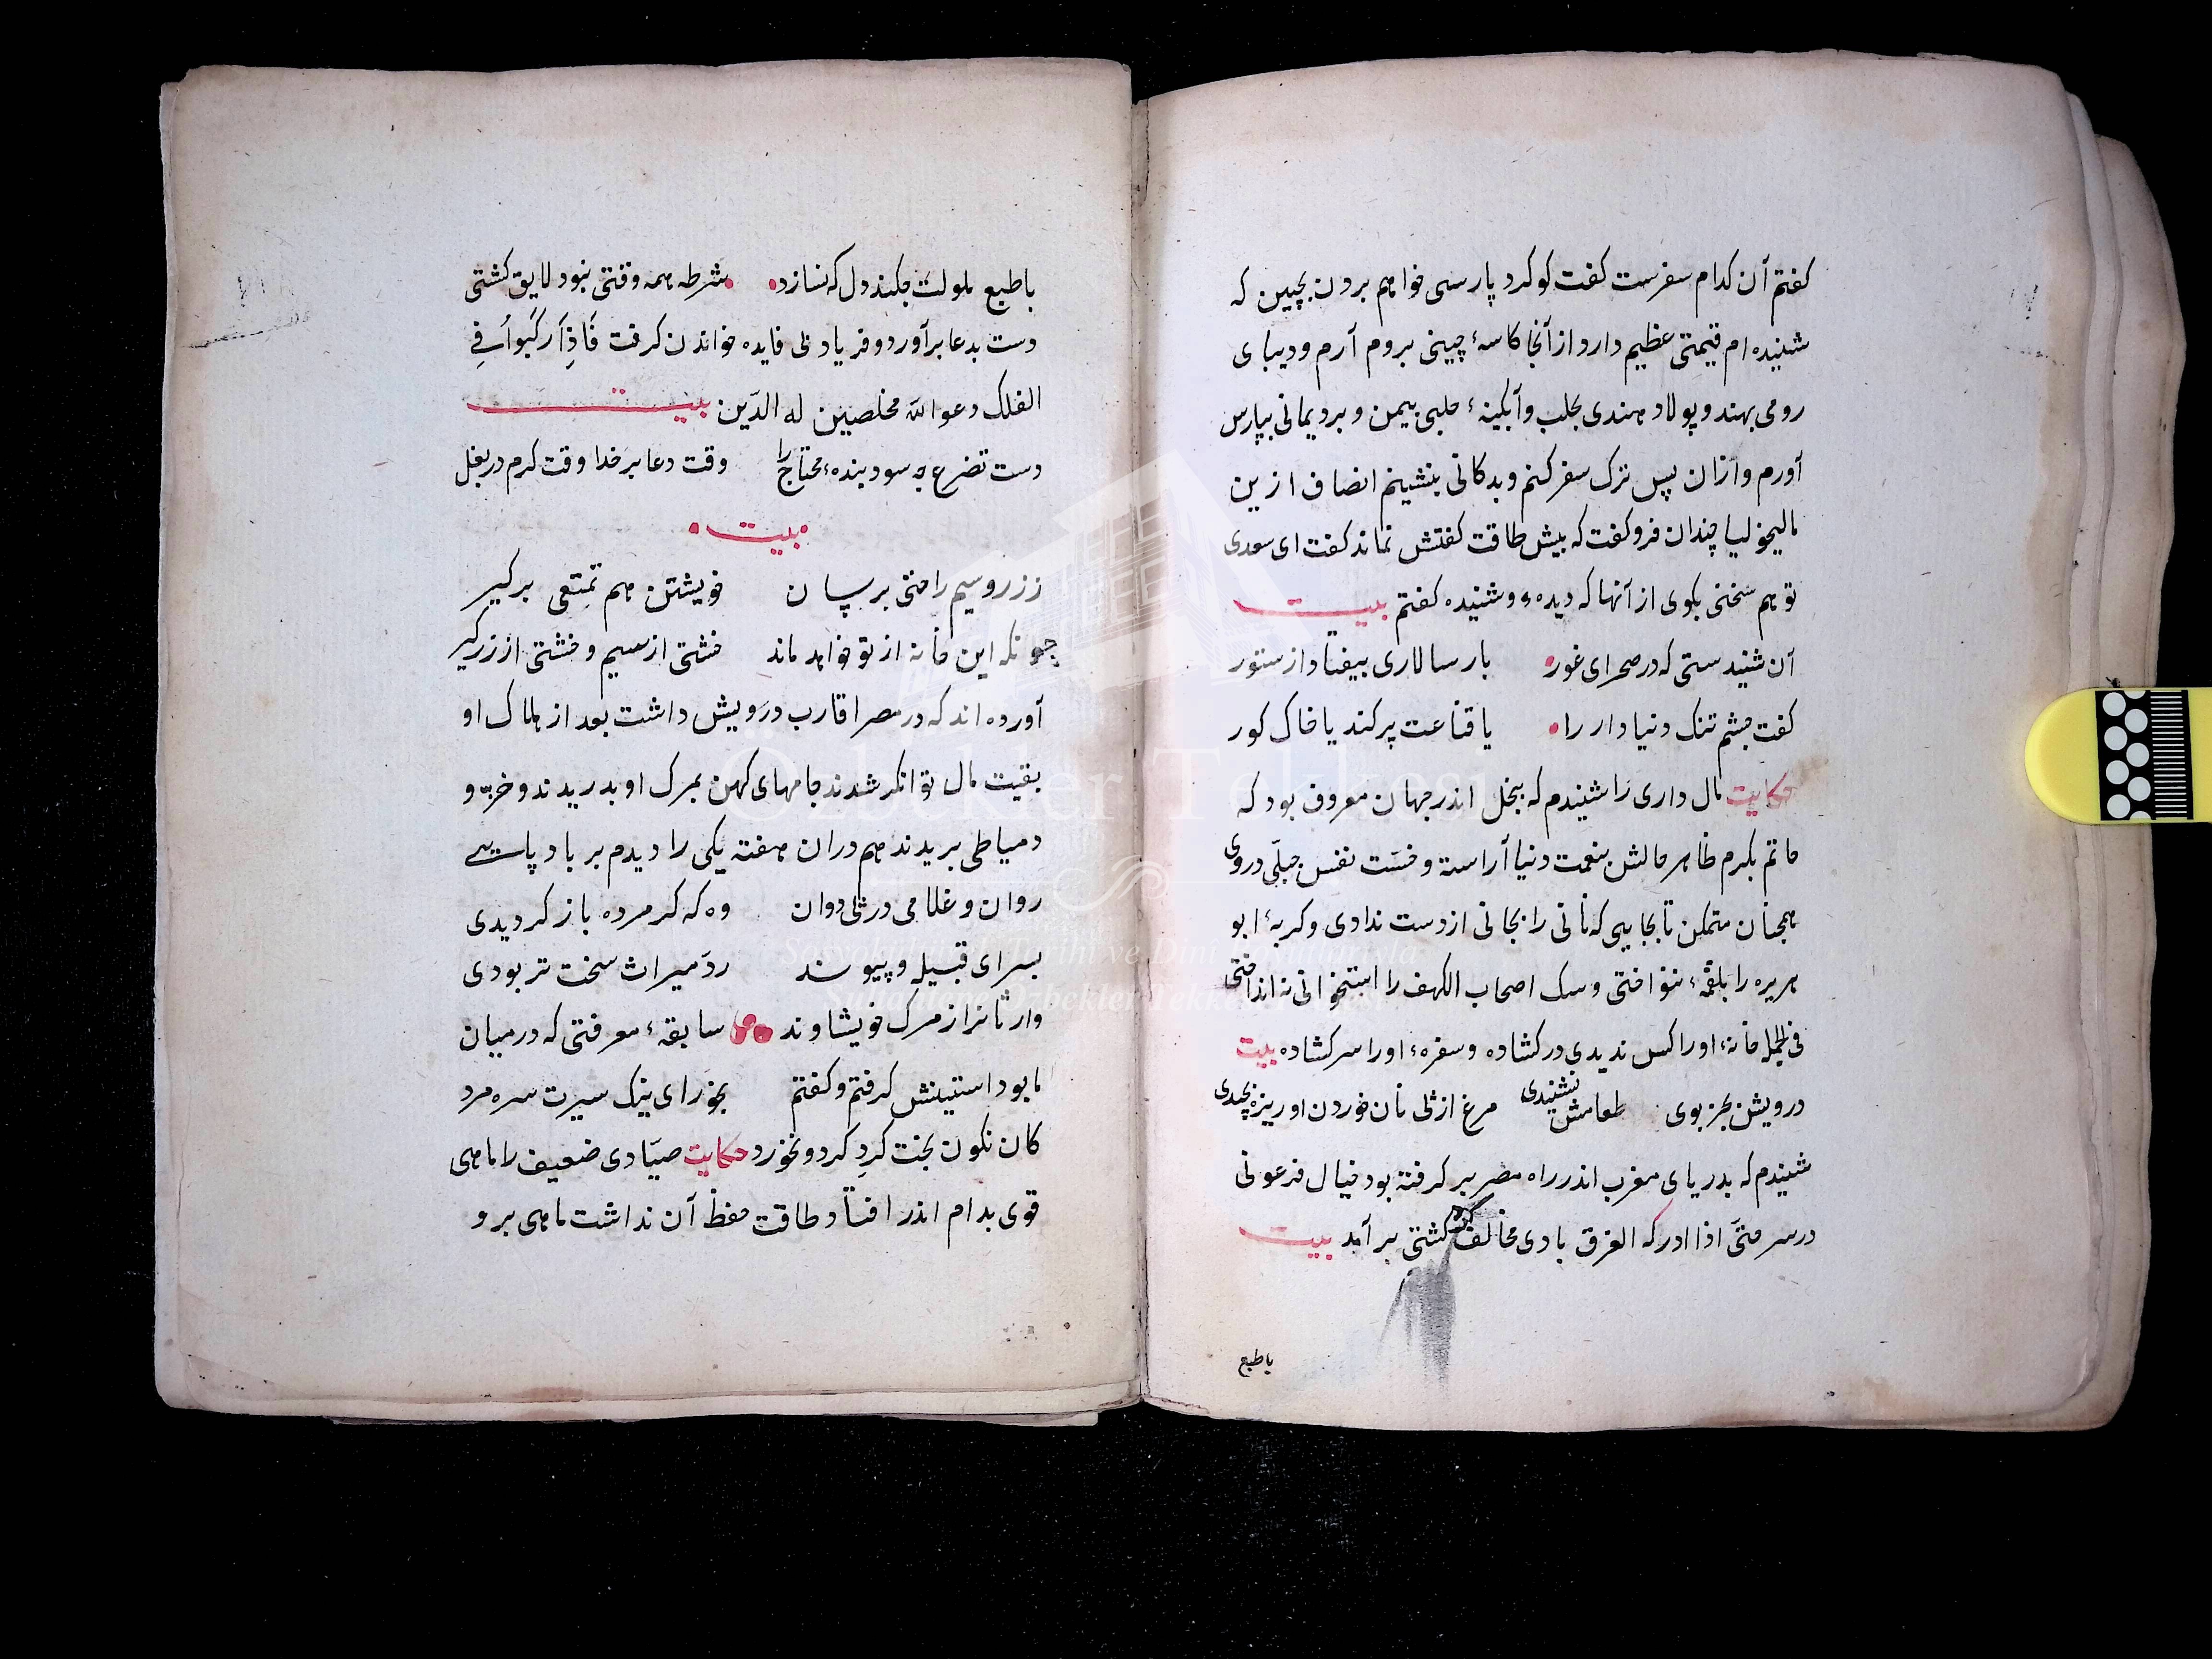 کفتم آن کدام سفرست کفت کوکرد پارسی خواهم بردن بچین که
شنیده ام قیمتی عظیم دارد از آنجا کاسهٔ چینی بروم آرم و دیبای
رومی بهند و پولاد هندی بحلب و آبکینهٔ حلبی بیمن و برد یمانی بپارس
آورم و ازان پس ترک سفر کنم و بدکانی بنشینم انصاف ازین
مالیخولیا چندان فرو کفت که بیش طاقت کفتنش نماند کفت ای سعدی
تو هم سخنی بکوی از آنها که دیدهٔ و شنیده کفتم بیت
آن شنیدستی که در صحرای غور بار سالاری بیفتاد از ستور
کفت چشم تنک دنیا دار را یا قناعت پر کند یا خاک کور
حکایت مال داری را شنیدم که ببخل اندر جهان معروف بود که
حاتم بکرم ظاهر حالش بنعمت دنیا آراسته و خسّت نفس جبلّی در وی
همچنان متمکن تا بجایی که نانی را بجانی از دست ندادی و کربهٔ ابو
هریره را بلقمهٔ ننواختی و سک اصحاب الکهف را استخوانی نه انداختی
فی الجمله خانهٔ اورا کس ندیدی در کشاده و سفرهٔ اورا سر کشاده بیت
درویش بجز بوی طعامش نشنیدی مرغ از پی نان خوردن او ریزه نچیدی
شنیدم که بدریای مغرب اندر راه مصر بر کرفته بود خیال فرعونی
در سر حتّی اذا ادرکه الغرق بادی مخالف کشتی بر آمد بیت
باطبع
باطبع ملولت چکند دل که نسازد شرطه همه وقتی نبود لایق کشتی
دست بدعا بر آورد و فریاد بی فایده خواندن کرفت فَاذِاَ رَکَبوا فِی
الفلک دعوا الله مخلصین له الدّین بیت
دست تضرع چه سود بندهٔ محتاج را وقت دعا بر خدا وقت کرم در بغل
بیت
از زر و سیم راحتی برسان خویشتن هم تمتّعی برکیر
چونکه این خانه از تو خواهد ماند خشتی از سیم و خشتی از زر کیر
آورده اند که در مصر اقارب درویش داشت بعد از هلاک او
بقیت مال توانکر شدند جامهای کهن بمرک او بدریدند و خزّ و
دمیاطی بریدند هم دران هفته یکی را دیدم بر باد پایی
روان و غلامی در پی دوان وه که کر مرده باز کردیدی
بسرای قبیله و پیوند ردّ میراث سخت تر بودی
وارثانرا ز مرک خویشاوند سابقهٔ معرفتی که در میان
ما بود استینش کرفتم و کفتم بخور ای نیک سیرت سره مرد
کان نکون بخت کرد کرد و نخورد حکایت صیّادی ضعیف را ماهی
قوی بدام اندر افتاد و طاقت حفظ آن نداشت ماهی بر و